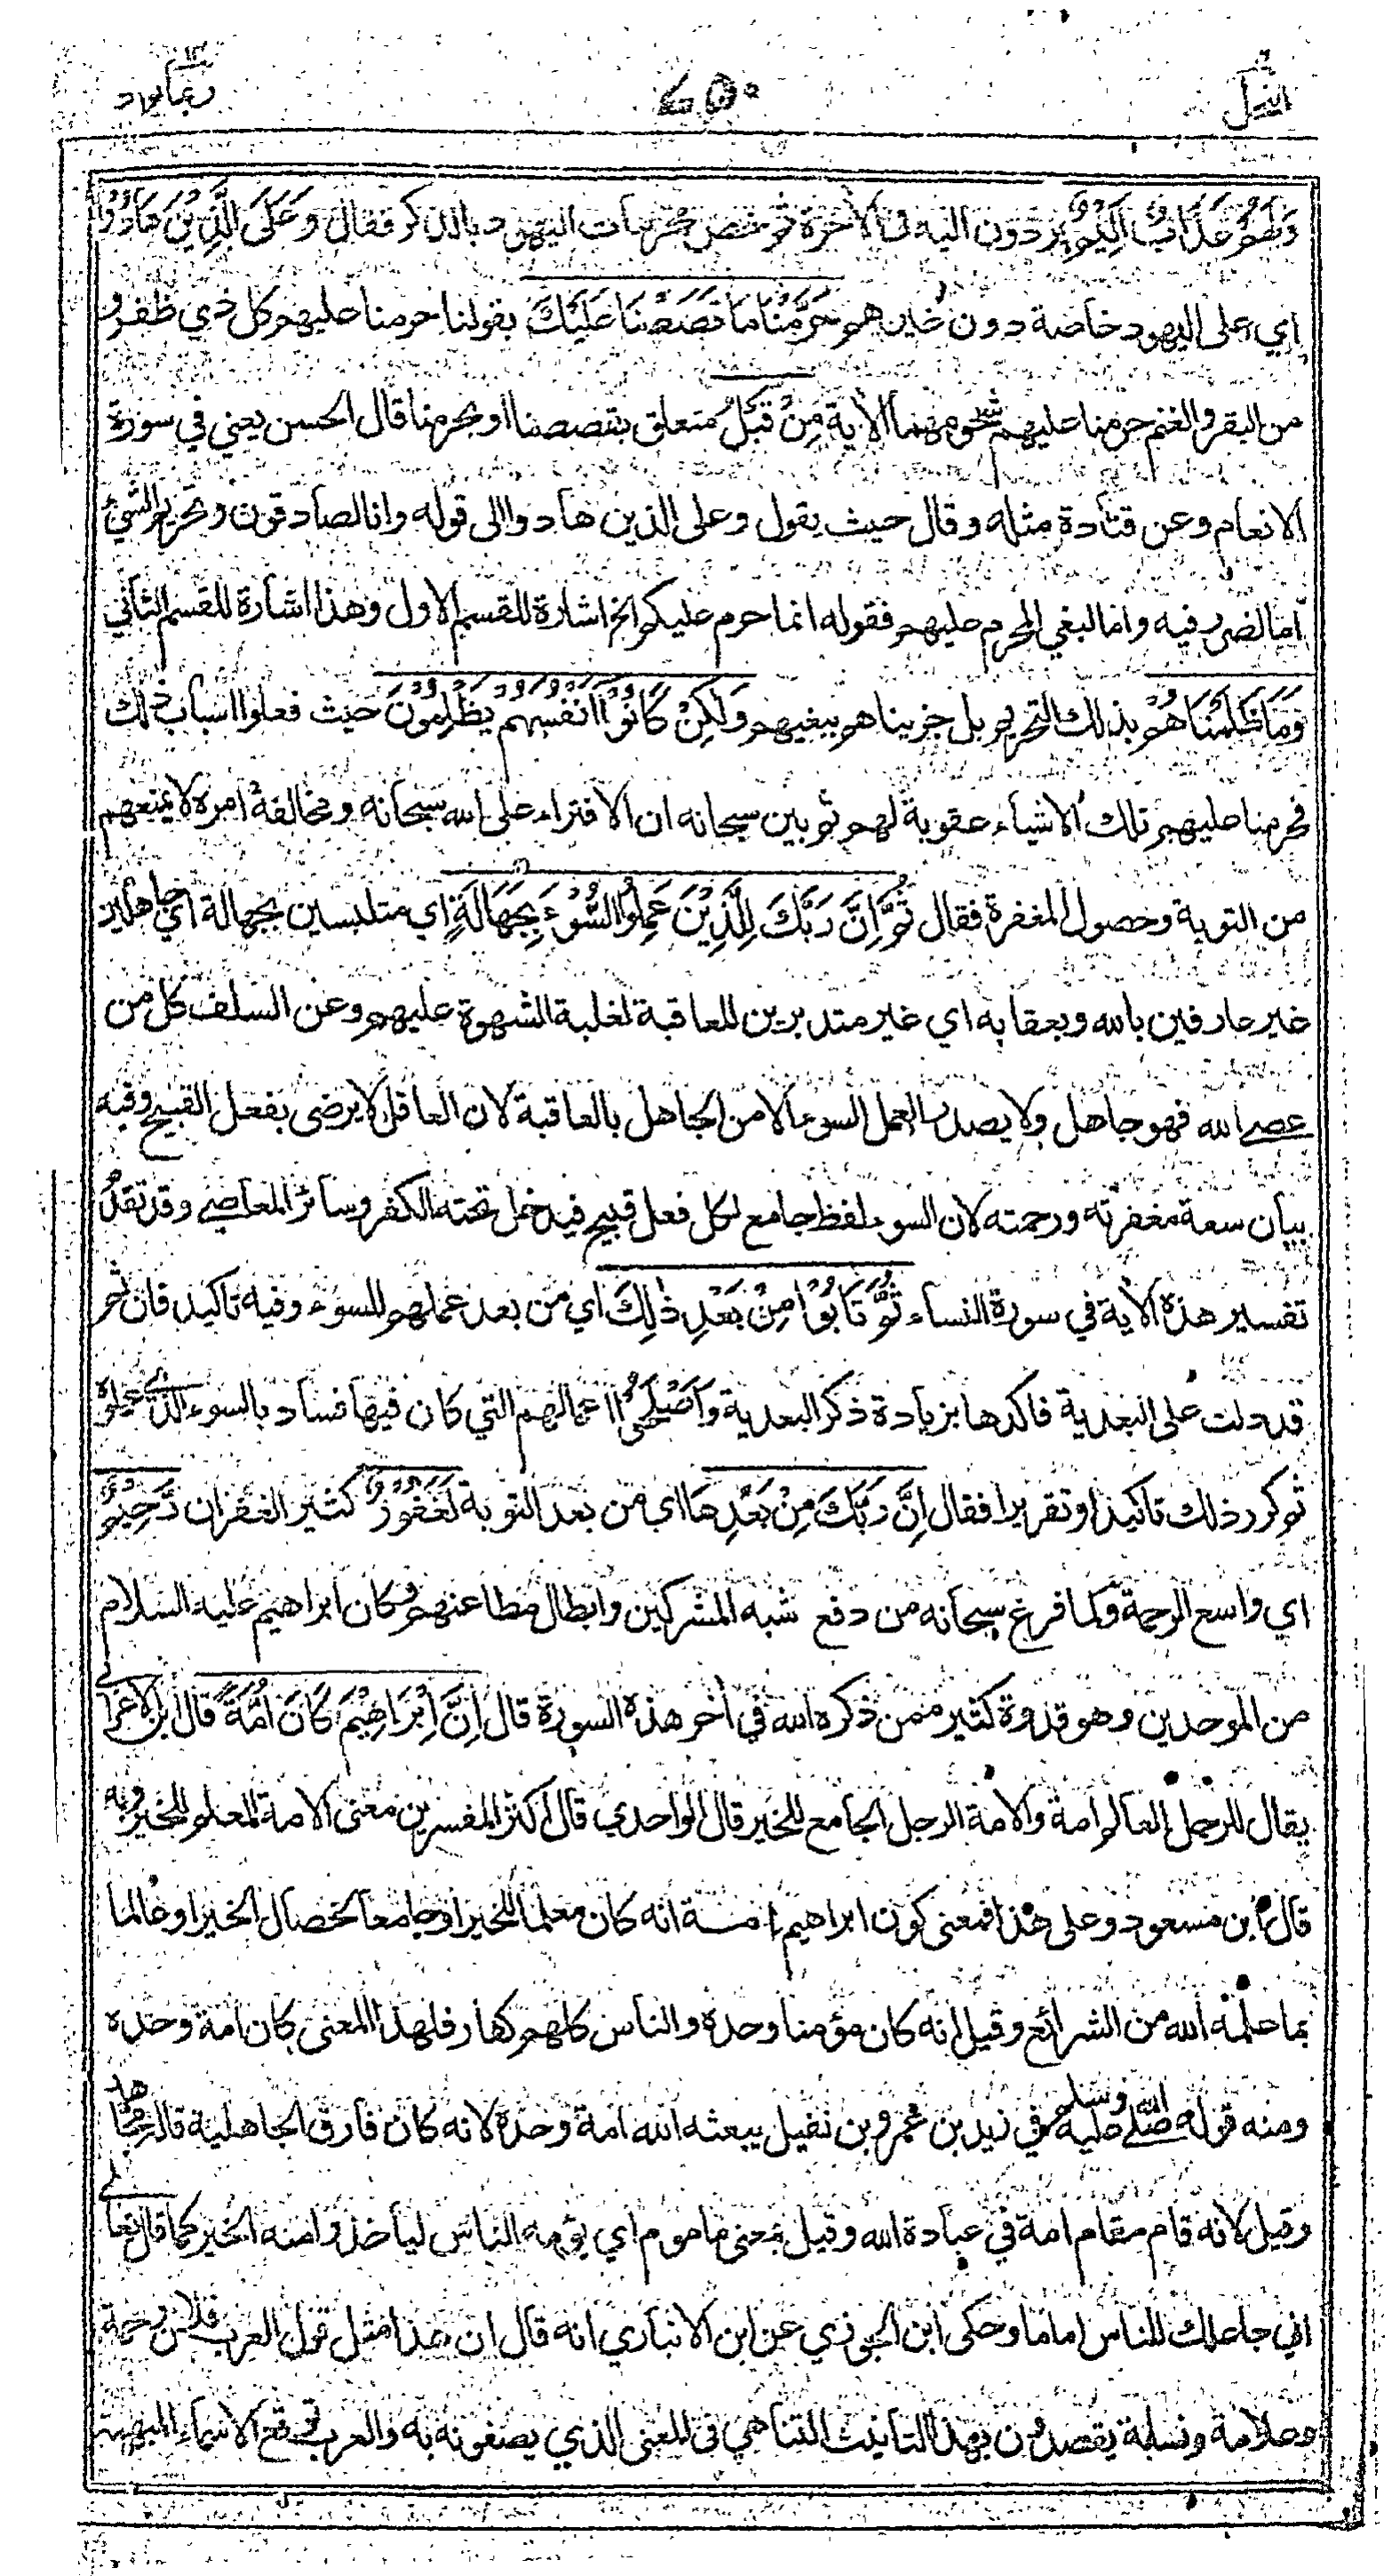 النحل ٤٥٠ ربما ١٤
وَلَهُمْ عَذَابٌ اَلِيْمٌ يردون اليه فى الاٰخرة ثم خص محرمات اليهود بالذكر فقال وَعَلَى الَّذِيْنَ هَادُوْا
اي على اليهود خاصة دون غيرهم حَرَّمْنَا مَا قَصَصْنَا عَلَيْكَ بقولنا حرمنا عليهم كل ذي ظفر و
من البقر والغنم حرمنا عليهم شحومهما الاٰية مِنْ قَبْلُ متعلق بقصصنا او بحرمنا قال الحسن يعني في سورة
الانعام وعن قتادة مثله وقال حيث يقول وعلى الذين هادوا الى قوله وانا لصادقون وتحريم الشيء
اما لضر رفيه واما لبغي المحرم عليهم فقوله انما حرم عليكم الخ اشارة للقسم الاول وهذا اشارة للقسم الثاني
وَمَا ظَلَمْنَاهُمْ بذلك التحريم بل جزيناهم ببغيهم وَلٰكِنْ كَانُوْا اَنْفُسَهُمْ يَظْلِمُوْنَ حيث فعلوا اسباب ذلك
فحرمنا عليهم تلك الاشياء عقوبة لهم ثم بين سبحانه ان الافتراء على الله سبحانه ومخالفة امره لا يمنعهم
من التوبة وحصول المغفرة فقال ثُمَّ اِنَّ رَبَّكَ لِلَّذِيْنَ عَمِلُوا السُّوْءَ بِجَهَالَةٍ اي متلبسين بجهالة اي جاهلين
غير عارفين بالله وبعقابه اي غير متدبرين للعاقبة لغلبة الشهوة عليهم وعن السلف كل من
عصى الله فهو جاهل ولا يصدر العمل السوء الا من الجاهل بالعاقبة لان العاقل لا يرضى بفعل القبيح وفيه
بيان سعة مغفرته ورحمته لان السوء لفظ جامع لكل فعل قبيح فيدخل تحته الكفر وسائر المعاصي وقد تقدم
تفسير هذه الاٰية في سورة النساء ثُمَّ تَابُوْا مِنْ بَعْدِ ذٰلِكَ اي من بعد عملهم للسوء وفيه تاكيد فان ثم
قد دلت على البعدية فاكدها بزيادة ذكر البعدية وَاَصْلَحُوْا اعمالهم التي كان فيها فساد بالسوء الذي عملوه
ثم كرر ذلك تاكيدا وتقريرا فقال اِنَّ رَبَّكَ مِنْ بَعْدِهَا اي من بعد التوبة لَغَفُوْرٌ كثير الغفران رَّحِيْمٌ
اي واسع الرحمة ولما فرغ سبحانه من دفع شبه المشركين وابطال مطاعنهم وكان ابراهيم عليه السلام
من الموحدين وهو قدوة كثير ممن ذكره الله في اٰخر هذه السورة قال اِنَّ اِبْرَاهِيْمَ كَانَ اُمَّةً قال ابن الاعرابي
يقال للرجل العالم امة والامة الرجل الجامع للخير قال الواحدي قال اكثر المفسرين معنى الامة المعلم للخير وبه
قال ابن مسعود وعلى هذا فمعنى كون ابراهيم امة انه كان معلما للخير او جامعا لخصال الخير او عالما
بما علمه الله من الشرائع وقيل انه كان مؤمنا وحده والناس كلهم كفار فلهذا المعنى كان امة وحده
ومنه قوله صلى الله عليه وسلم في زيد بن عمرو بن نفيل يبعثه الله امة وحده لانه كان فارق الجاهلية قاله مجاهد
وقيل لانه قام مقام امة في عبادة الله وقيل بمعنى ماموم اي يؤمه الناس لياخذوا منه الخير كما قال تعالى
اني جاعلك للناس اماما وحكى ابن الجوزي عن ابن الانباري انه قال ان هذا مثل قول العرب فلان رحمة
وعلامة ونسابة يقصدون بهذا التانيث التناهي في المعنى الذي يصفونه به والعرب توقع الاسماء المبهمة